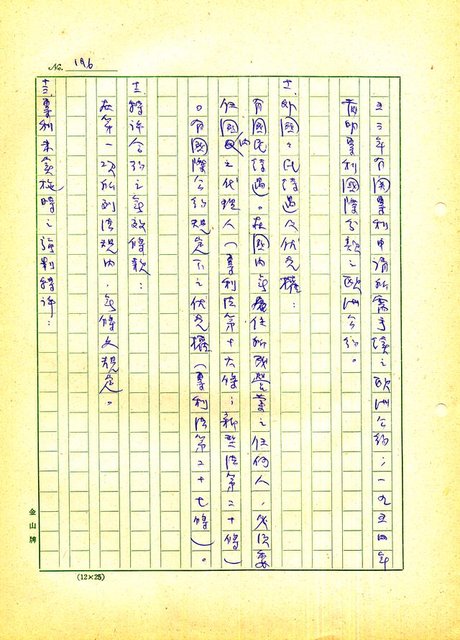 No. 176
五三年有關專利申請所需手續之歐洲公約；一九五四年
有關專利國際分類之歐洲公約。
十一、外國人民待遇及優先權：
有國民待遇。在國內無住所或營業之任何人，必須委
任國內之代理人（專利法第十六條；新型法第二十條）
。有國際公約規定下之優先權（專利法第二十七條）。
十二、特許合約之無效條款：
在第一次所列法規內，無條文規定。
十三、專利未實施時之強制特許：
金山牌
(12×25)